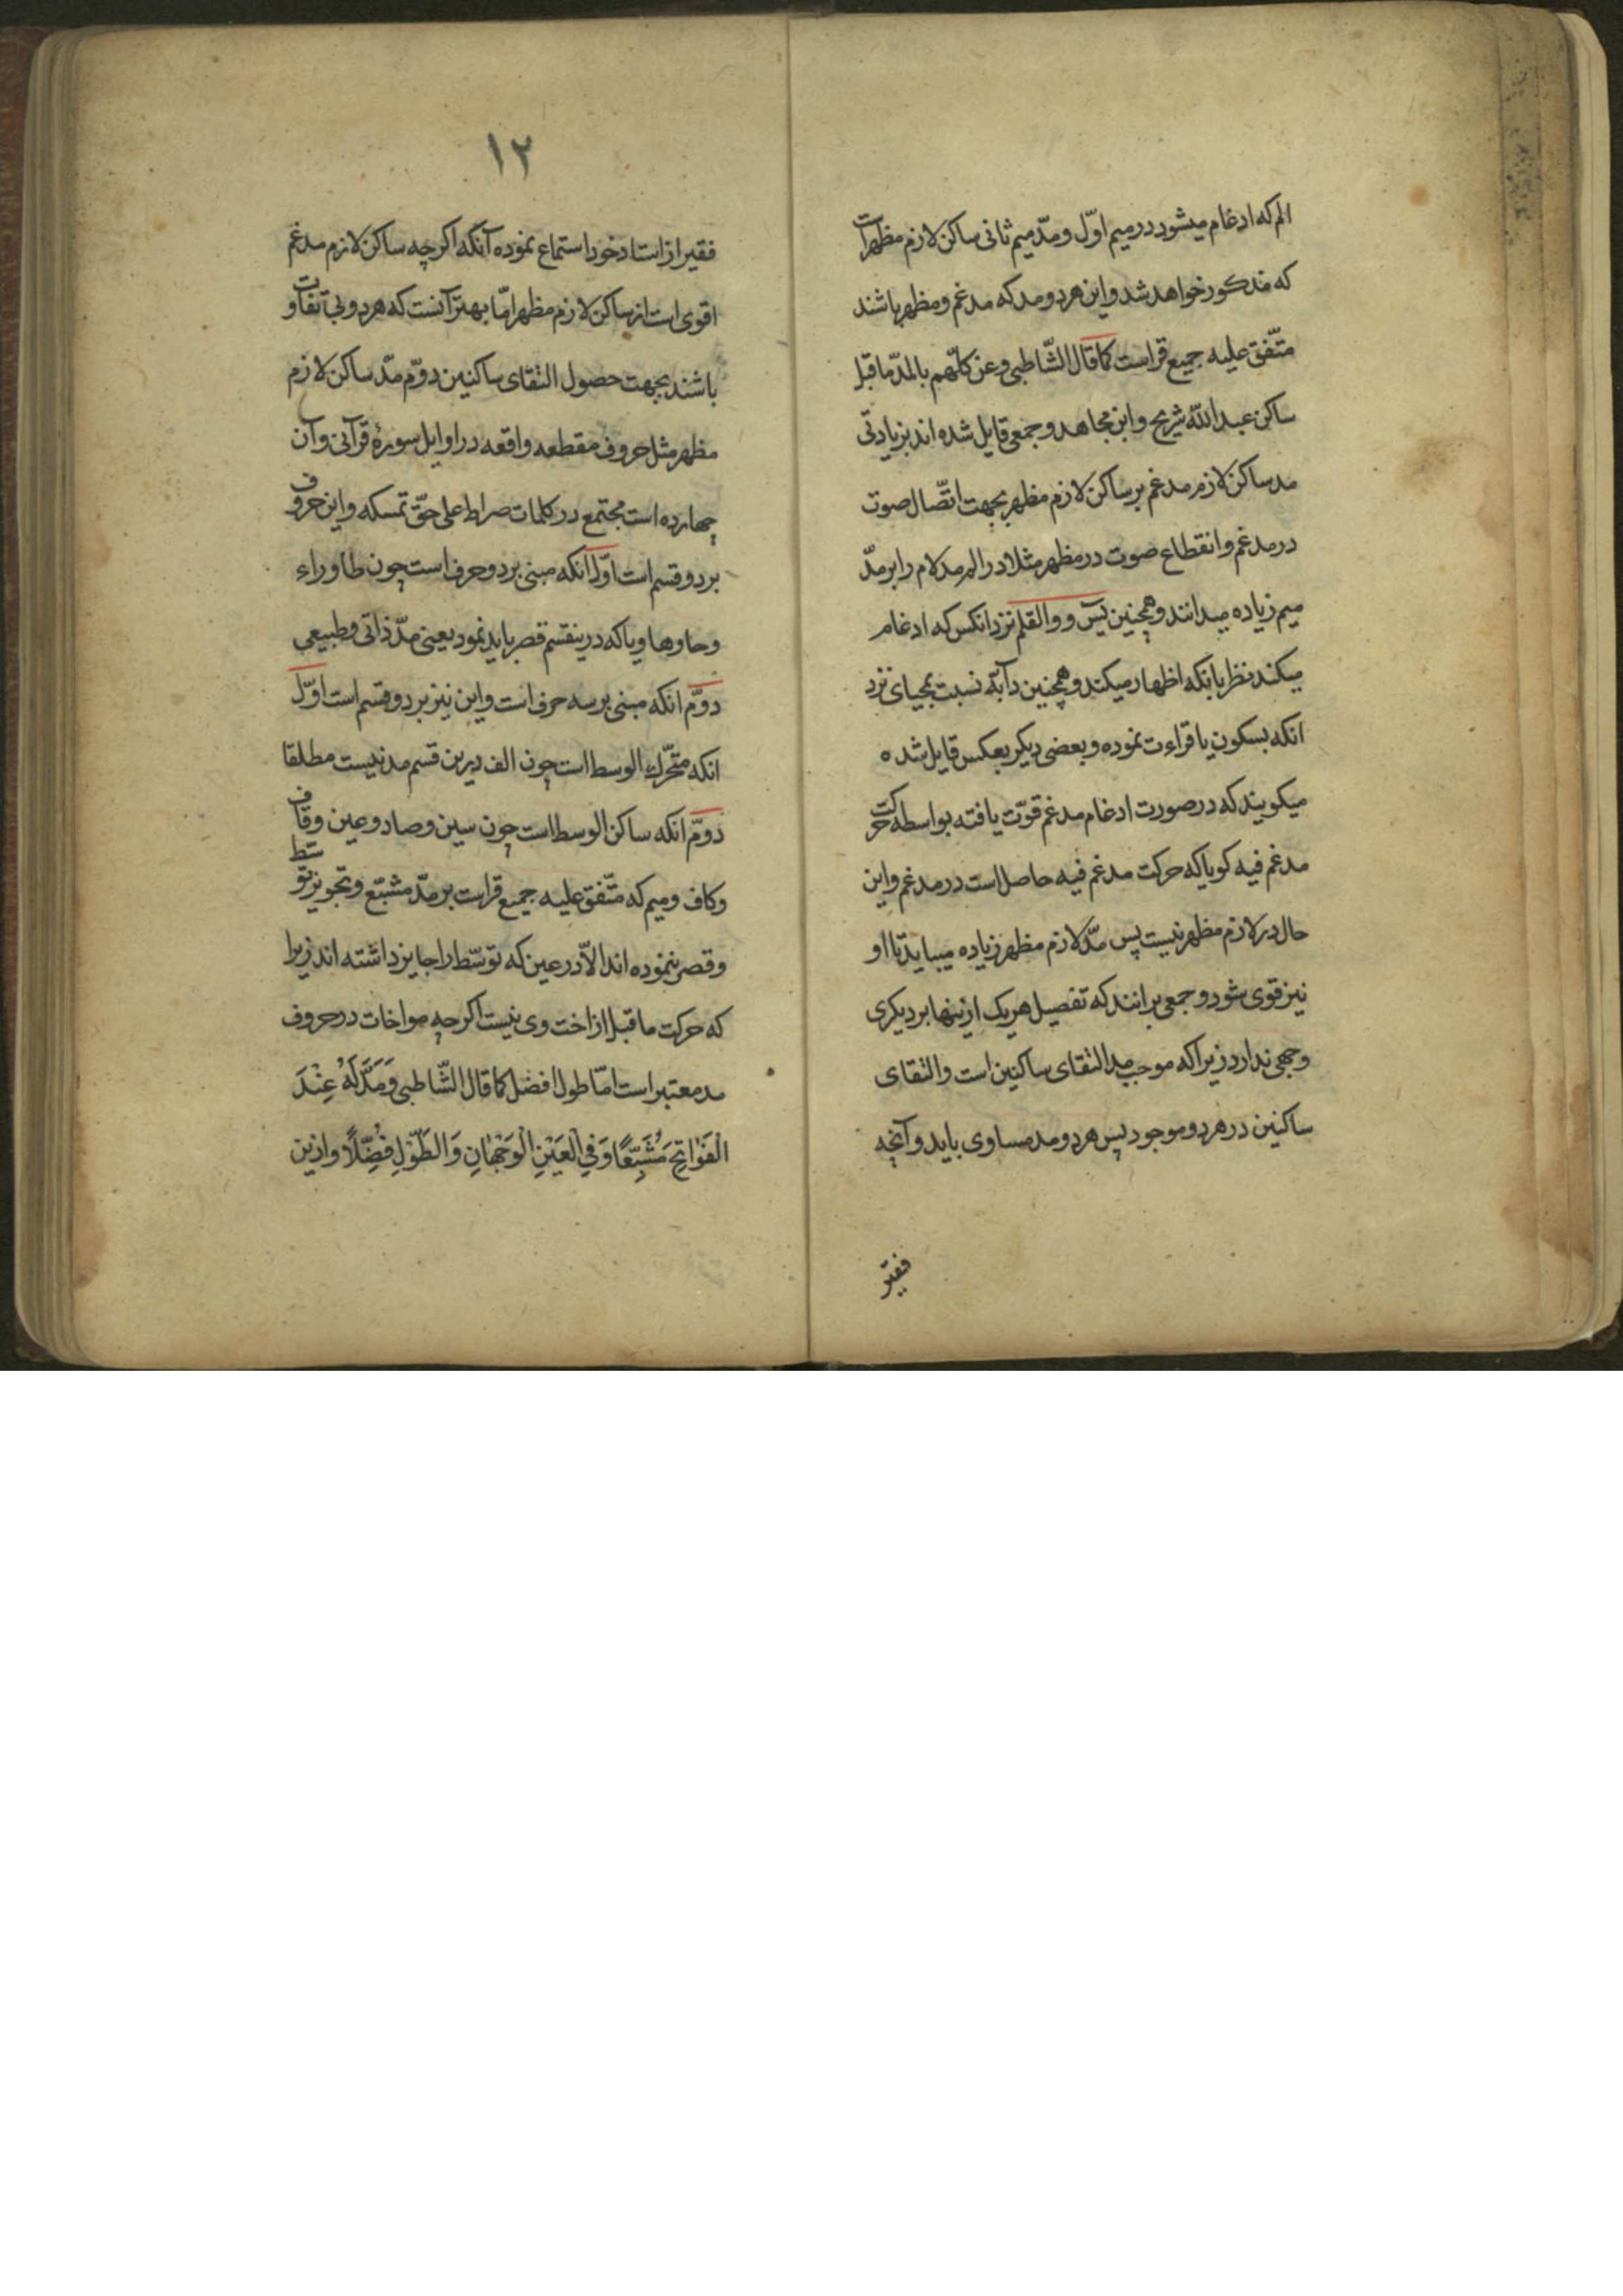 الم که ادغام میشود در میم اوّل و مدّ میم ثانی ساکن لازم مظهرات
که مذکور خواهد شد و این هر دو مد که مدغم و مظهر باشند
متّفق علیه جمیع قراست کما قال الشّاطبی و عن کلّهم بالمدّ ما قبل
ساکن عبد اللّه شریح و ابن مجاهد و جمعی قایل شده اند بزیادتی
مد ساکن لازم مدغم بر ساکن لازم مظهر بجهت اتّصال صوت
در مدغم و انقطاع صوت در مظهر مثلا در الم مد لام را بر مدّ
میم زیاده میدانند و همچنین یس و والقلم نزد انکس که ادغام
میکند نظر بانکه اظهار میکند و همچنین دآبّة نسبت بمحیای نزد
انکه بسکون یا قراءت نموده و بعضی دیکر بعکس قایل شده
میکویند که در صورت ادغام مدغم قوّت یافته بواسطه حرکت
مدغم فیه کویا که حرکت مدغم فیه حاصل است در مدغم و این
حال در لازم مظهر نیست پس مدّ لازم مظهر زیاده میباید تا او
نیز قوی شود و جمعی برانند که تفصیل هر یک ازینها بر دیکری
وجهی ندارد زیرا که موجب مد التقای ساکنین است و التقای
ساکنین در هر دو موجود پس هر دو مد مساوی باید و آنچه
فقیر
١٢
فقیر از استاد خود استماع نموده آنکه اکرچه ساکن لازم مدغم
اقوی است از ساکن لازم مظهر امّا بهتر آنست که هر دو بی تفاوت
باشند بجهت حصول التقای ساکنین دوّم مدّ ساکن لازم
مظهر مثل حروف مقطعه واقعه در اوایل سورهٔ قرآنی و آن
چهارده است مجتمع در کلمات صراط علی حقّ تمسکه و این حروف
بر دو قسم است اوّل آنکه مبنی بر دو حرف است چون طا و راء
و حا و ها و یا که درینقسم قصر باید نمود یعنی مدّ ذاتی و طبیعی
دوّم انکه مبنی بر سه حرف است و این نیز بر دو قسم است اوّل
انکه متحرّک الوسط است چون الف درین قسم مد نیست مطلقا
دوّم انکه ساکن الوسط است چون سین و صاد و عین و قاف
و کاف و میم که متّفق علیه جمیع قراست بر مدّ مشبّع و تجویز توسّط
و قصر ننموده اند الاّ در عین که توسّط را جایز داشته اند زیرا
که حرکت ما قبل از اخت وی نیست اکرچه مواخات در حروف
مد معتبر است امّا طول افضل کما قال الشّاطبی وَمَدَّ لَهُ عِنْدَ
الْفَوَاتِحِ مُشْبِّعًا وَفِي الْعَيْنِ الْوَجْهَانِ وَالطَّوْلِ فُضِّلًا و ازین